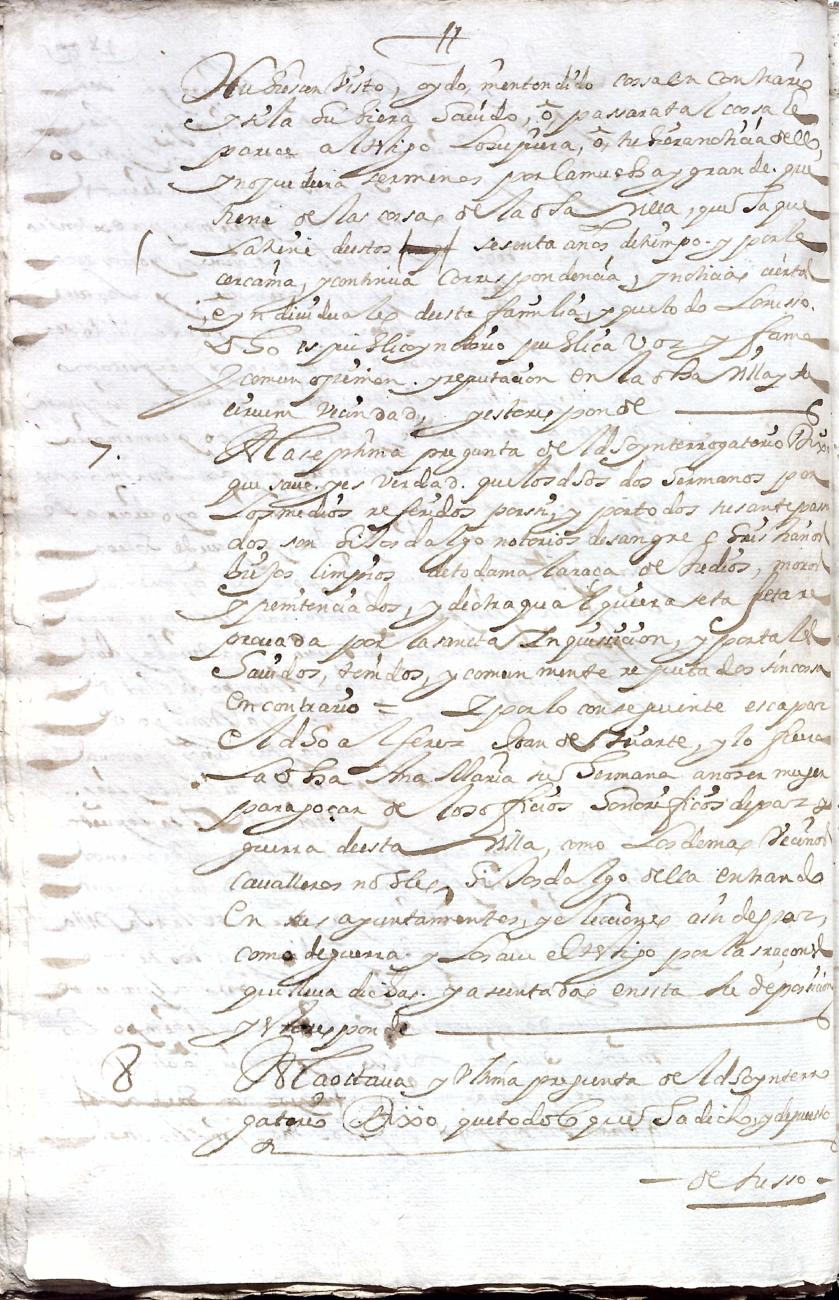 hubiesen visto, oydo, ni entendido cossa en contrario
y si la hubiera savido, ô passara tal cossa le
pareze al testigo lo supiera, ô tubiera noticia dello,
y no pudiera ser menos por la mucha y grande que
tiene de las cossas de la dha Villa, que ha que
la tiene destos sesenta años de tiempo y por la
cercania, y continua correspondencia, y noticias ciertas
è yndividuales desta familia, y que todo lo susso
dho es publico y notorio publica voz y fama
comun opinion y reputacion en la dha Villa y su
circum vecindad, y esto responde
7. A la septima pregunta del dho ynterrogatorio Dixo
que save y es verdad que los dhos dos hermanos por
los medios referidos por si, y por todos sus antepassa
dos son hijos dalgo notorios de sangre christianos
biejos limpios de toda mala raça de Judios, moros
y penitenciados, y de otra qual quiera seta re
provada por la sancta Inquisicion, y por tales
havidos, tenidos, y comun mente reputados sin cossa
en contrario = Y por lo conseguiente es capaz
el dho alferez Joan de Duarte, y lo fuera
la dha Ana Maria su hermana a no ser muger
para goçar de los officios honorificos de paz y
guerra desta Villa, como los demas Vecinos
cavalleros nobles, hijos dalgo della entrando
en sus ayuntamientos, y elecciones assi de paz,
como de guerra y lo save el testigo por las raçones
que lleva dichas y assentadas en esta su deposicion
y esto responde
8 A la octava y Ultima pregunta del dho ynterro
gatorio Dixo, que todo lo que ha dicho, y depuesto
de susso